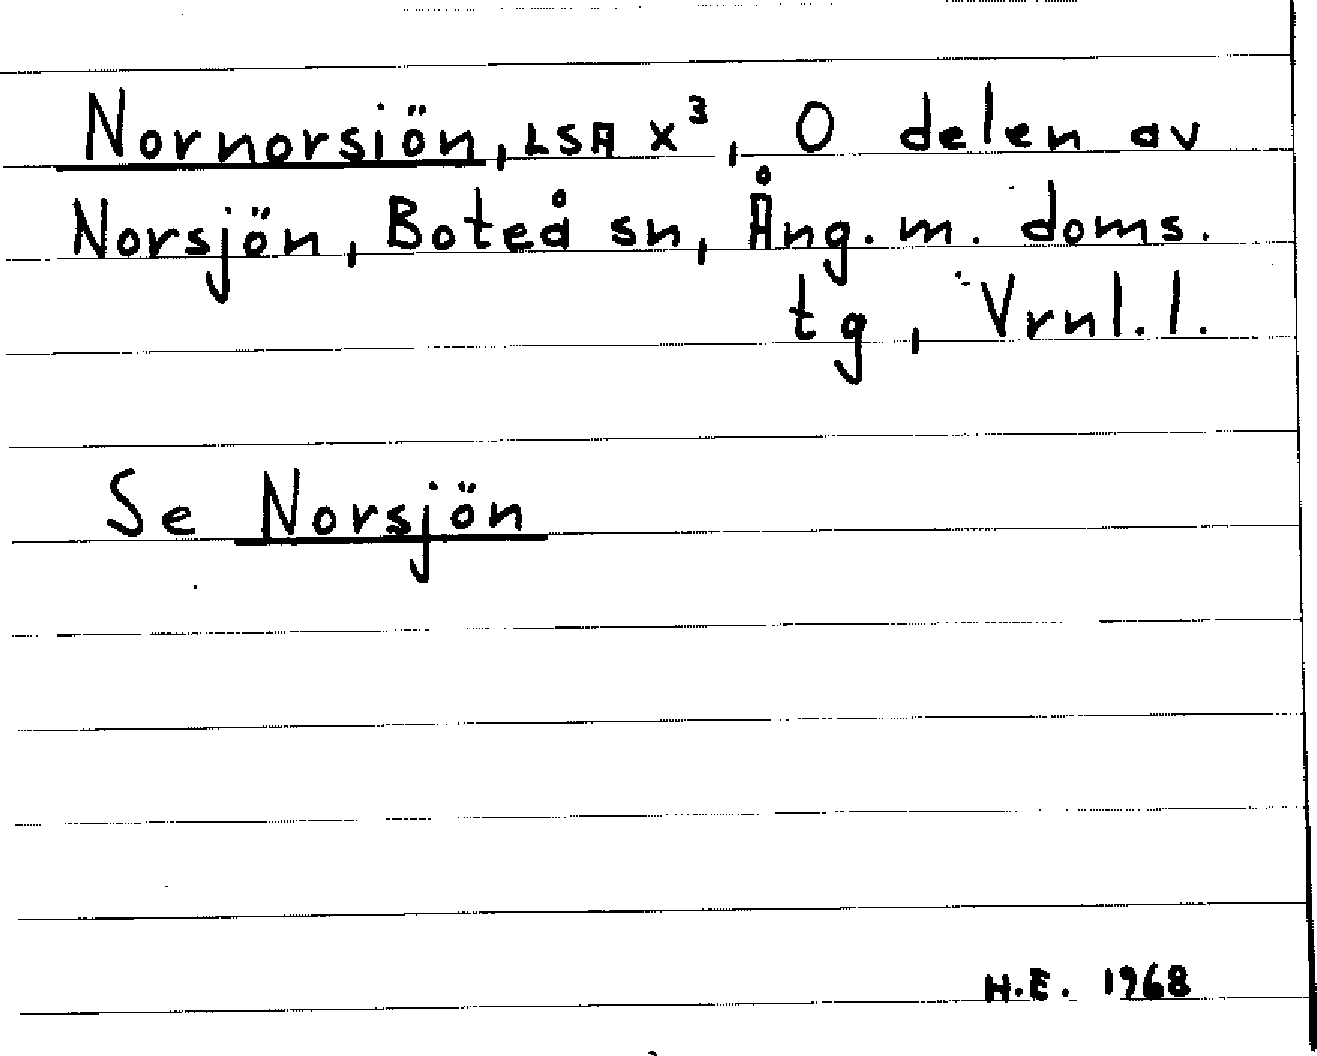 Nornorsiön, LSA X³, O delen av
Norsjön, Boteå sn, Ång. m. doms.
tg, Vrnl. l.
Se Norsjön
H.E. 1968